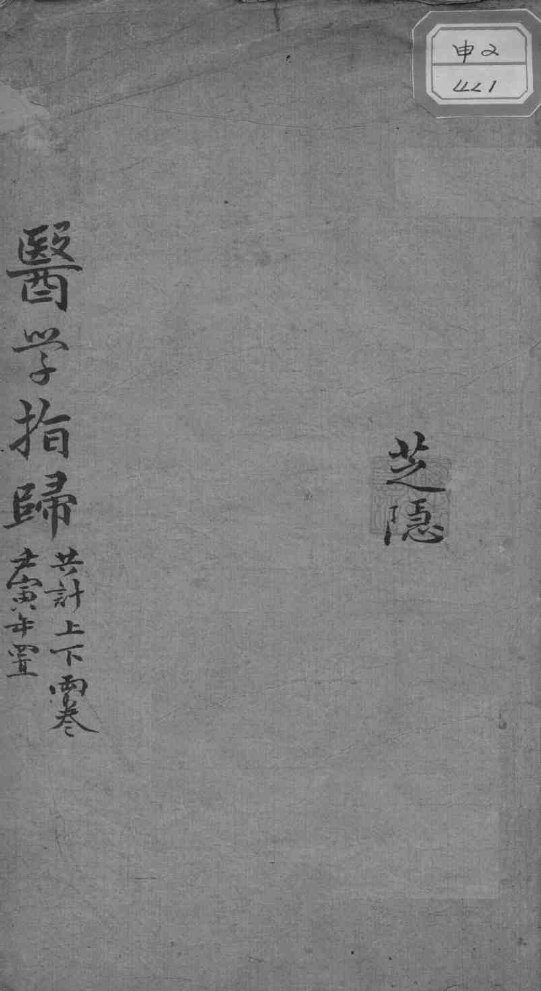 申又
441
芝隱
醫学指歸
共計上下兩卷
壬寅年置